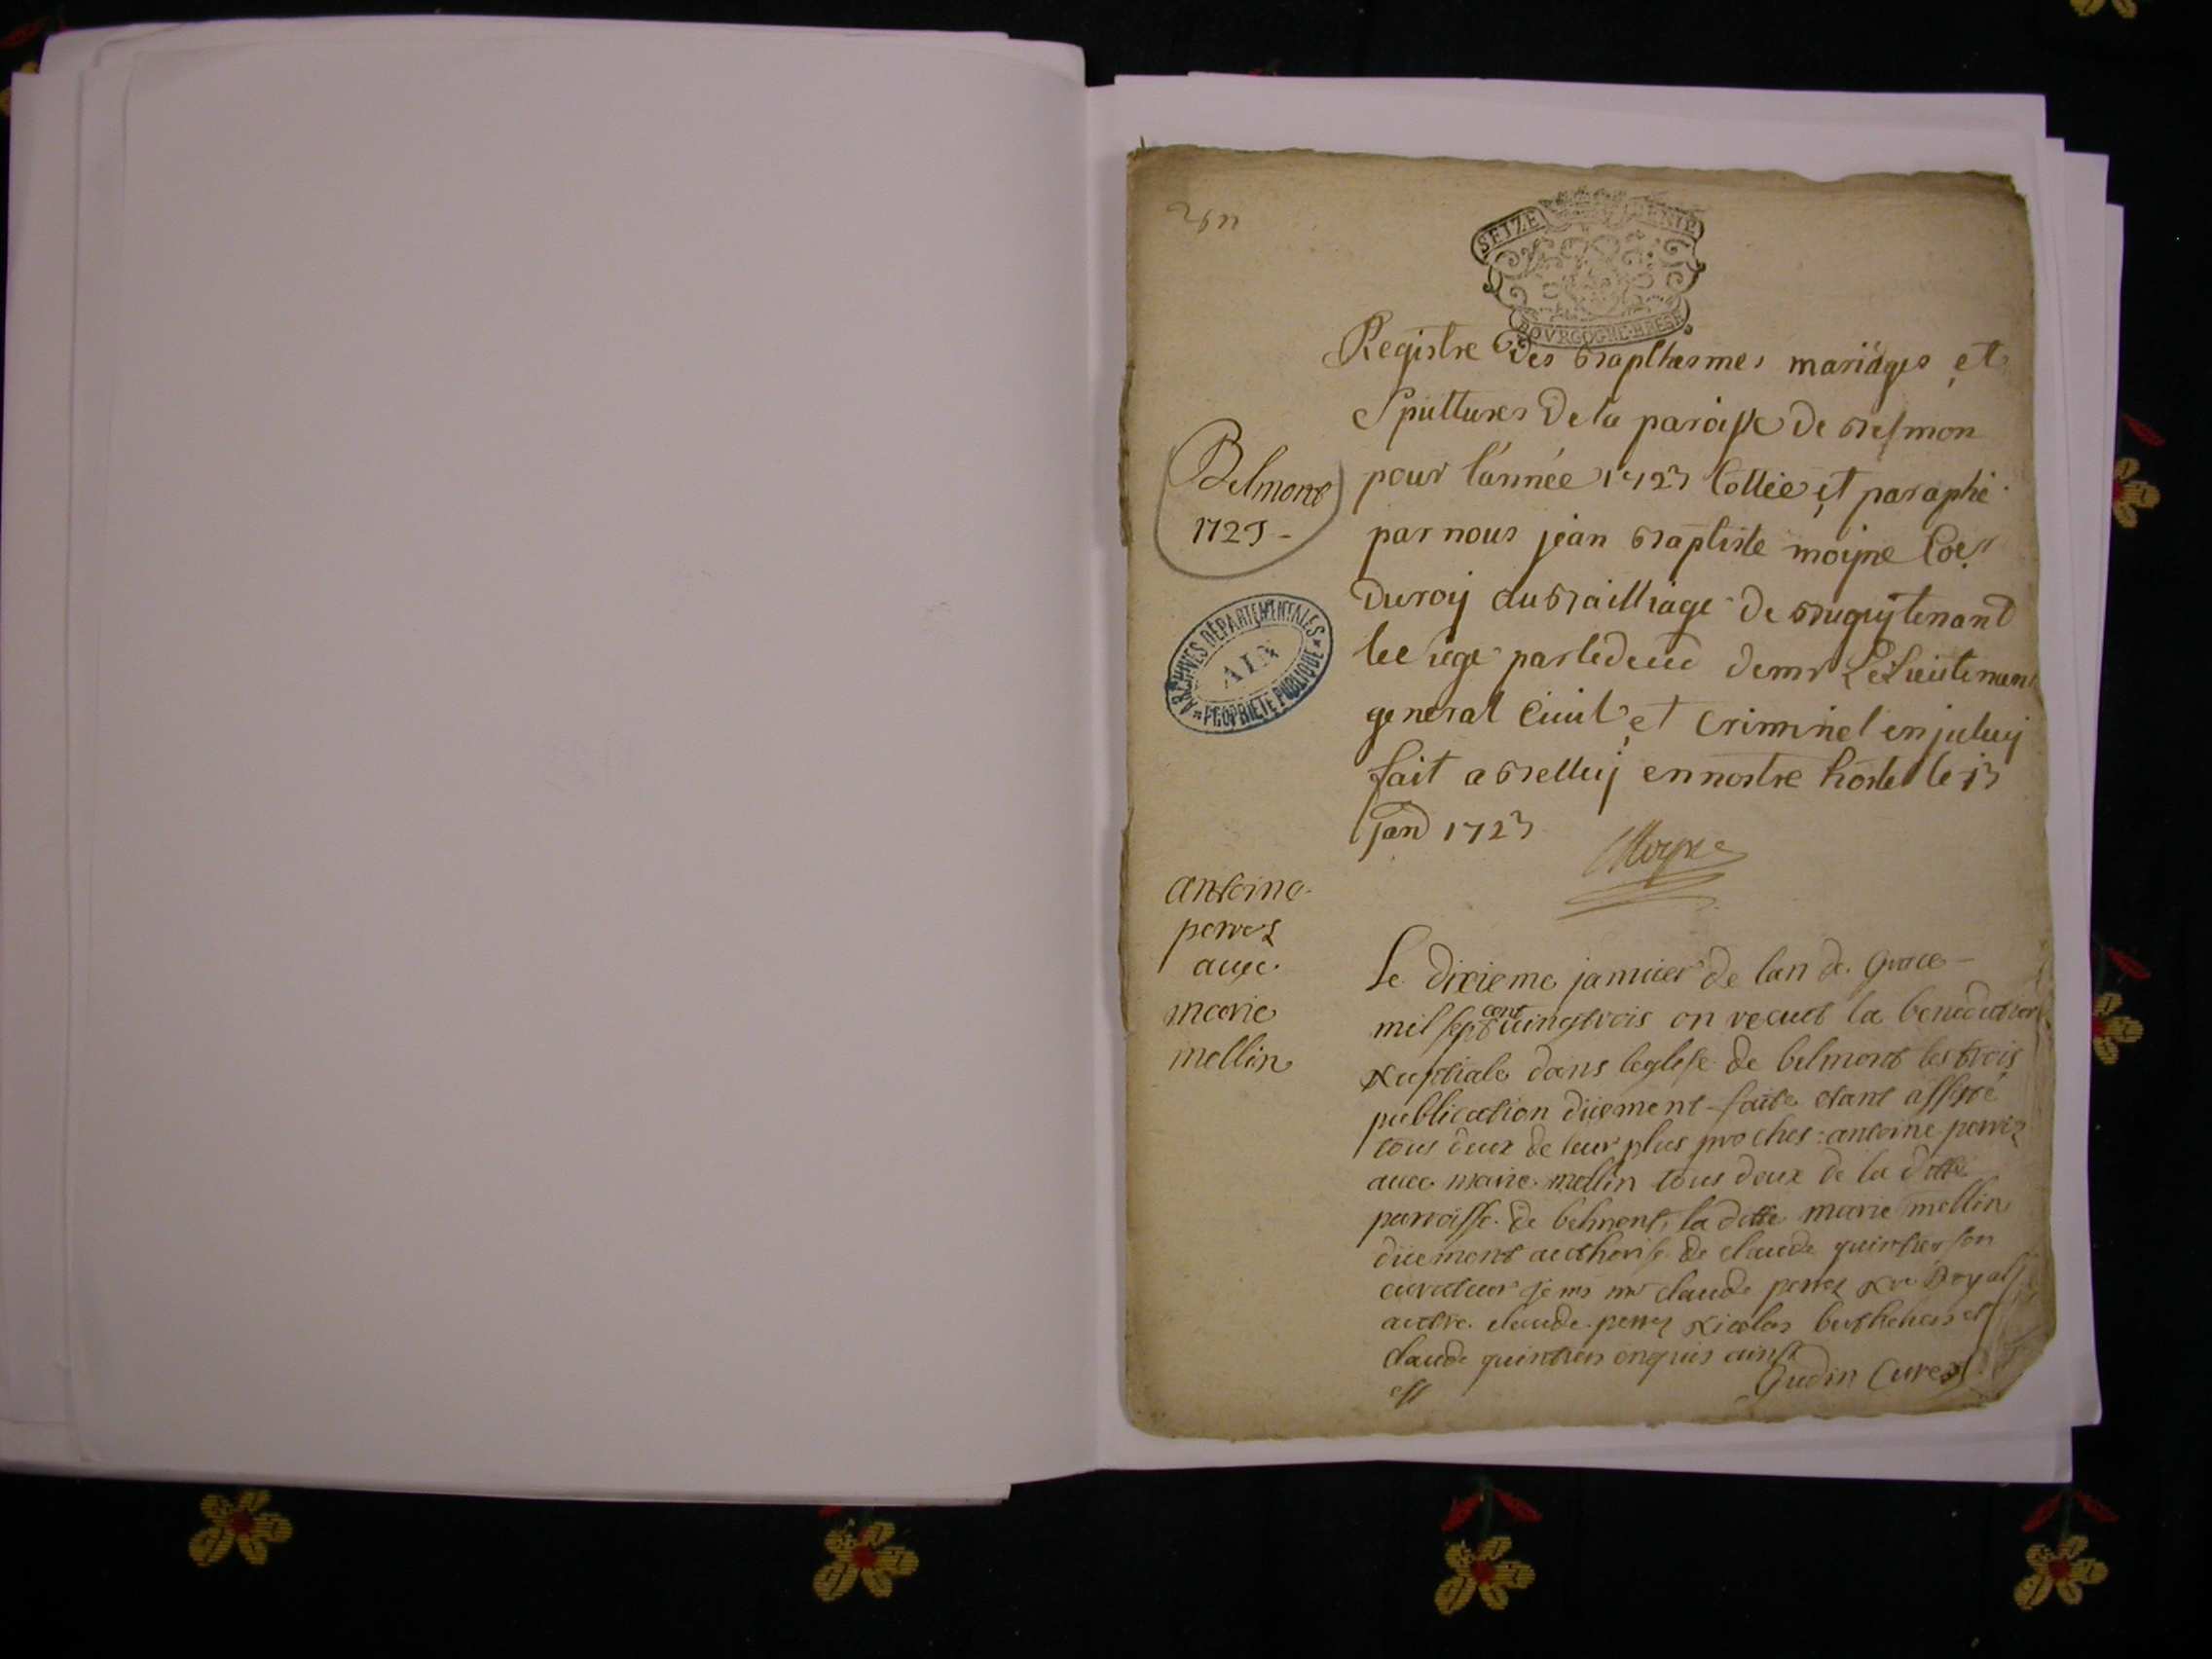 SEIZE DENIE
BOVRGOGNE·BRESSE
Registre Des Bapthesmes mariages et
Spulturес De la paroisse De Belmon
pour l'année 1723 Cottée et paraphé
par nous jean Baptiste moyne Coer
Du roy au Bailliage De Bugey tenant
le siege par le deced de mr Le Lieutenant
general Civil et Criminel en jceluy
fait a Belley en nostre hostel le 13
janv 1723
Moyne
Belmont
1723 -
ARCHIVES DÉPARTEMENTALES
AIN
PROPRIÉTÉ PUBLIQUE
antoine
perret
avec
marie
mollin
Le dixieme janvier de lan de Grace
mil sept cent vingt trois on recuet la benediction
Nuptiale dans leglise de belmont les trois
publication düement faite etant assisté
tous deux de leur plus proches: antoine perret
avec marie mollin tous deux de la ditte
paroisse de belmont, la ditte marie mollin
düement authorisé de claude quintien son
curateur claude perret Nre Royal
autre claude perret Nicolas
claude quintien enquis
Gudin Curé